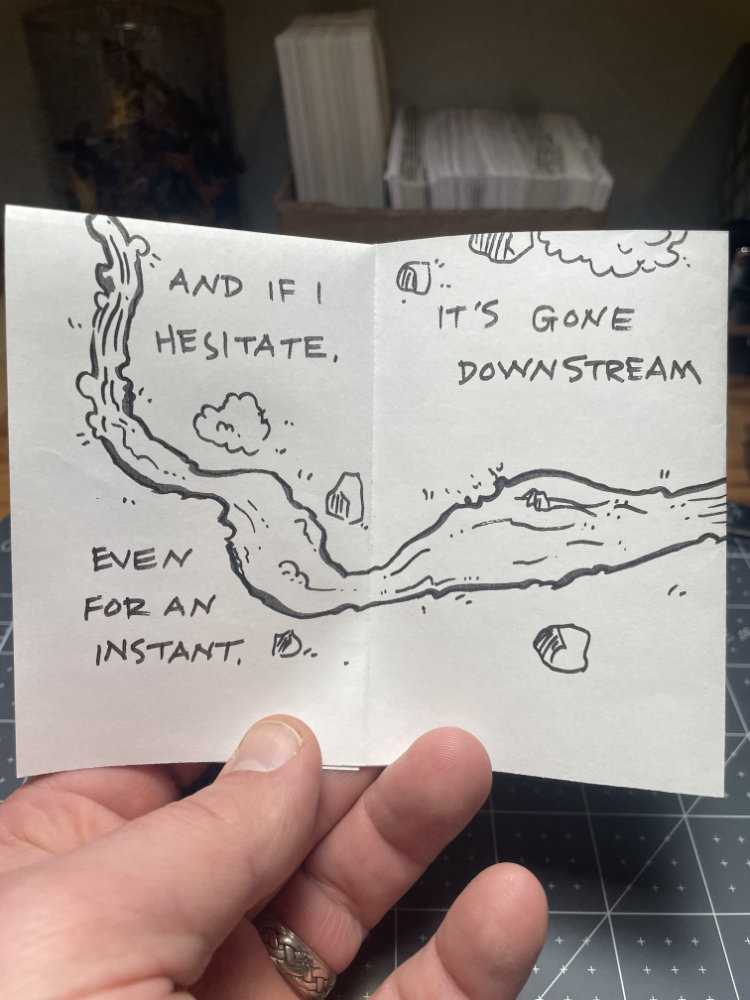 AND IF I
HESITATE,
EVEN
FOR AN
INSTANT,
IT'S GONE
DOWNSTREAM